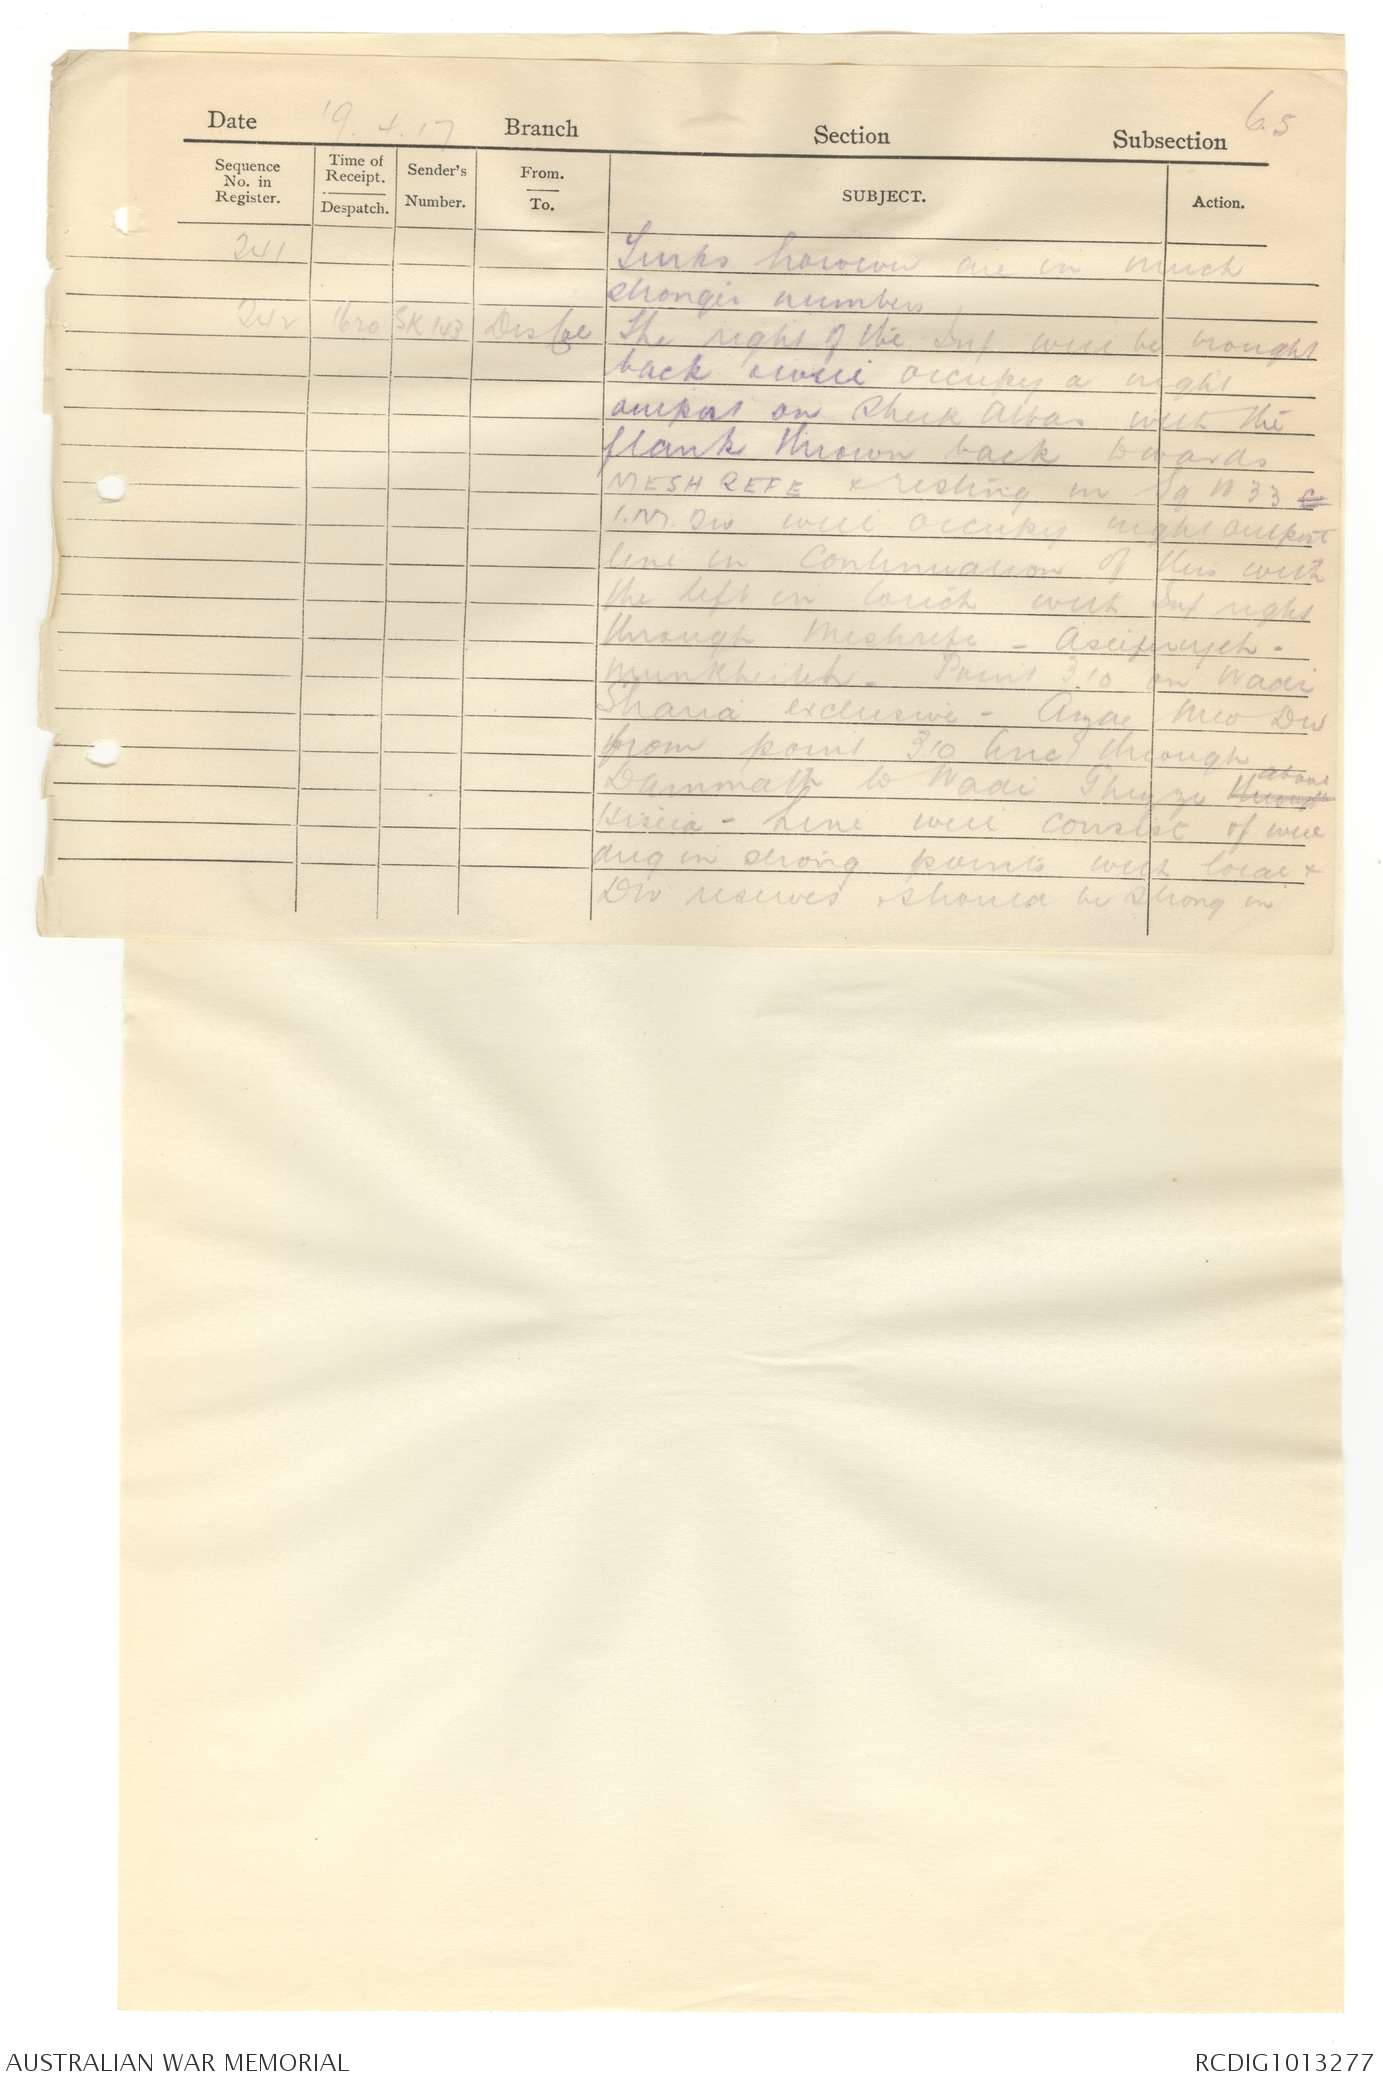 65
Date 19.4.17 Branch Section Subsection
Sequence No. in Register. Time of Receipt. Despatch. Sender's Number. From. To. SUBJECT. Action.
241 Turks however are in much
stronger numbers
242 1620 SK 143 Des Col The right of the Inf will be brought
back & will occupy a night
outpost on Sheik Abbas with the
flank thrown back towards
MESHREFE & resting in Sq W 33
I.M. Div will occupy night outpost
line in continuation of this with
the left in touch with Inf right
through Meshrefe - Aseiferiyeh -
Munkheileh - Point 310 on Wadi
Sharia exclusive - Anzac Mtd Div
from point 310 (inc) through
Dammath to Wadi Ghuzze above
Hiseia - Line will consist of well
dug in strong points with local &
Div reserves & should be strong in
AUSTRALIAN WAR MEMORIAL RCDIG1013277